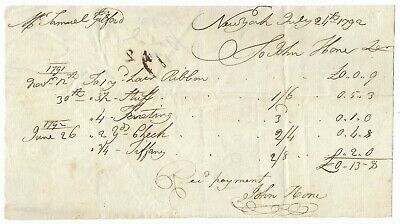 Mr Samuel Gilford
New York July 24th 1792
To John Hone Dr
1791
Novr 12th To 1 yd hair Ribbon £0.0.9
30th " 3½ Stuff 1/6 0.5.3
" 4 Ferreting 3 0.1.0
1792
June 26 " 2 yds Check 2/4 0.4.8
" ¾ Tiffany 2/8 0.2.0
£0-13-8
Recd payment
John Hone